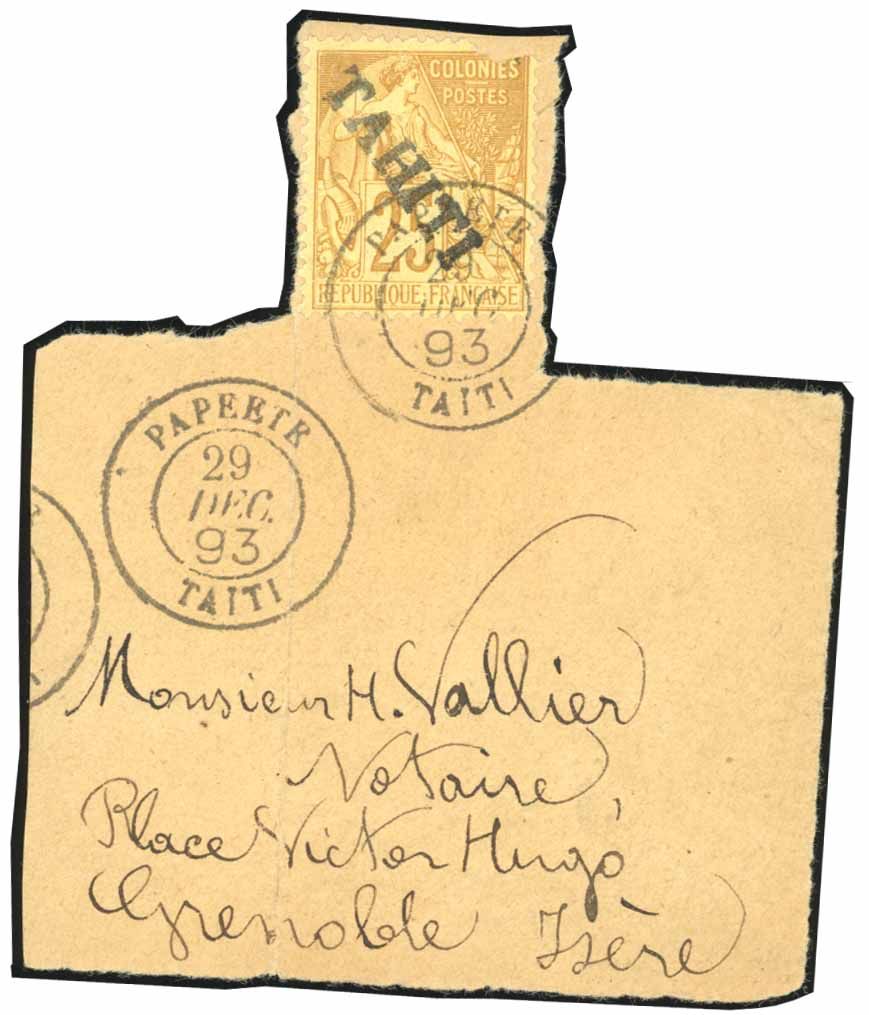 COLONIES
POSTES
TAHITI
25
REPUBLIQUE FRANÇAISE
PAPEETE
29
DEC
93
TAITI
PAPEETE
29
DEC.
93
TAITI
Monsieur H. Vallier
Notaire,
Place Victor Hugo
Grenoble Isère